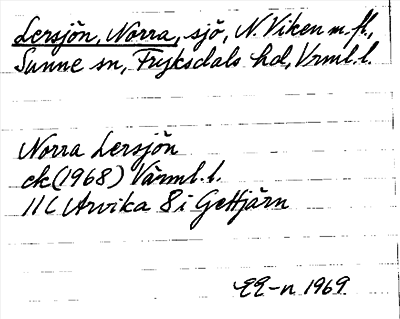 Lersjön, Norra, sjö, N. Viken m. fl.,
Sunne sn, Fryksdals hd, Vrml. l.
Norra Lersjön
ek (1968) Värml. l.
11C Arvika 8 i Gettjärn
EE-n 1969